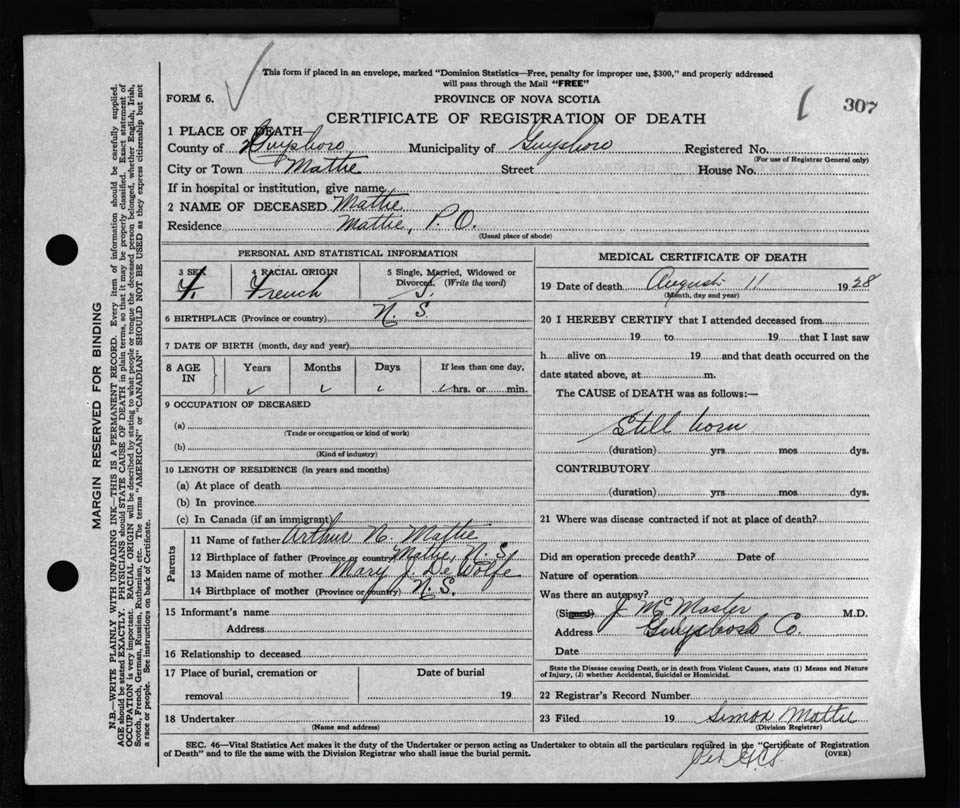 This form if placed in an envelope, marked "Dominion Statistics—Free, penalty for improper use, $300," and properly addressed
will pass through the Mail "FREE"
FORM 6.
PROVINCE OF NOVA SCOTIA
307
CERTIFICATE OF REGISTRATION OF DEATH
1 PLACE OF DEATH—
County of Guysboro Municipality of Guysboro Registered No.
(For use of Registrar General only)
City or Town Mattie Street House No.
If in hospital or institution, give name
2 NAME OF DECEASED Mattie
Residence Mattie, P.O.
(Usual place of abode)
PERSONAL AND STATISTICAL INFORMATION
3 SEX 4 RACIAL ORIGIN 5 Single, Married, Widowed or
Divorced. (Write the word)
F. French S.
6 BIRTHPLACE (Province or country) N. S.
7 DATE OF BIRTH (month, day and year)
8 AGE IN Years Months Days If less than one day,
hrs. or min.
9 OCCUPATION OF DECEASED
(a)
(Trade or occupation or kind of work)
(b)
(Kind of industry)
10 LENGTH OF RESIDENCE (in years and months)
(a) At place of death
(b) In province
(c) In Canada (if an immigrant)
Parents
11 Name of father Arthur N. Mattie
12 Birthplace of father (Province or country) Mattie, N. S.
13 Maiden name of mother Mary J. DeWolfe
14 Birthplace of mother (Province or country) N. S.
15 Informant's name
Address
16 Relationship to deceased
17 Place of burial, cremation or Date of burial
removal 19
18 Undertaker
(Name and address)
MEDICAL CERTIFICATE OF DEATH
19 Date of death August 11 1928
(Month, day and year)
20 I HEREBY CERTIFY that I attended deceased from
19 to 19 that I last saw
h alive on 19 and that death occurred on the
date stated above, at m.
The CAUSE of DEATH was as follows:—
Still born
(duration) yrs mos dys.
CONTRIBUTORY
(duration) yrs mos dys.
21 Where was disease contracted if not at place of death?
Did an operation precede death? Date of
Nature of operation
Was there an autopsy?
(Signed) J. McMaster M.D.
Address Guysboro Co.
Date
State the Disease causing Death, or in death from Violent Causes, state (1) Means and Nature
of Injury, (2) whether Accidental, Suicidal or Homicidal.
22 Registrar's Record Number
23 Filed 19 Simon Mattie
(Division Registrar)
SEC. 46—Vital Statistics Act makes it the duty of the Undertaker or person acting as Undertaker to obtain all the particulars required in the "Certificate of Registration
of Death" and to file the same with the Division Registrar who shall issue the burial permit.
(OVER)
Per
MARGIN RESERVED FOR BINDING
N.B.—WRITE PLAINLY WITH UNFADING INK—THIS IS A PERMANENT RECORD. Every item of information should be carefully supplied.
AGE should be stated EXACTLY. PHYSICIANS should STATE CAUSE OF DEATH in plain terms, so that it may be properly classified. Exact statement of
OCCUPATION is very important. RACIAL ORIGIN will be described by stating to what people or tongue the deceased person belonged, whether English, Irish,
Scotch, French, German, Russian, Ruthenian, etc. The terms "AMERICAN" or "CANADIAN" SHOULD NOT BE USED as they express citizenship but not
a race or people. See instructions on back of Certificate.